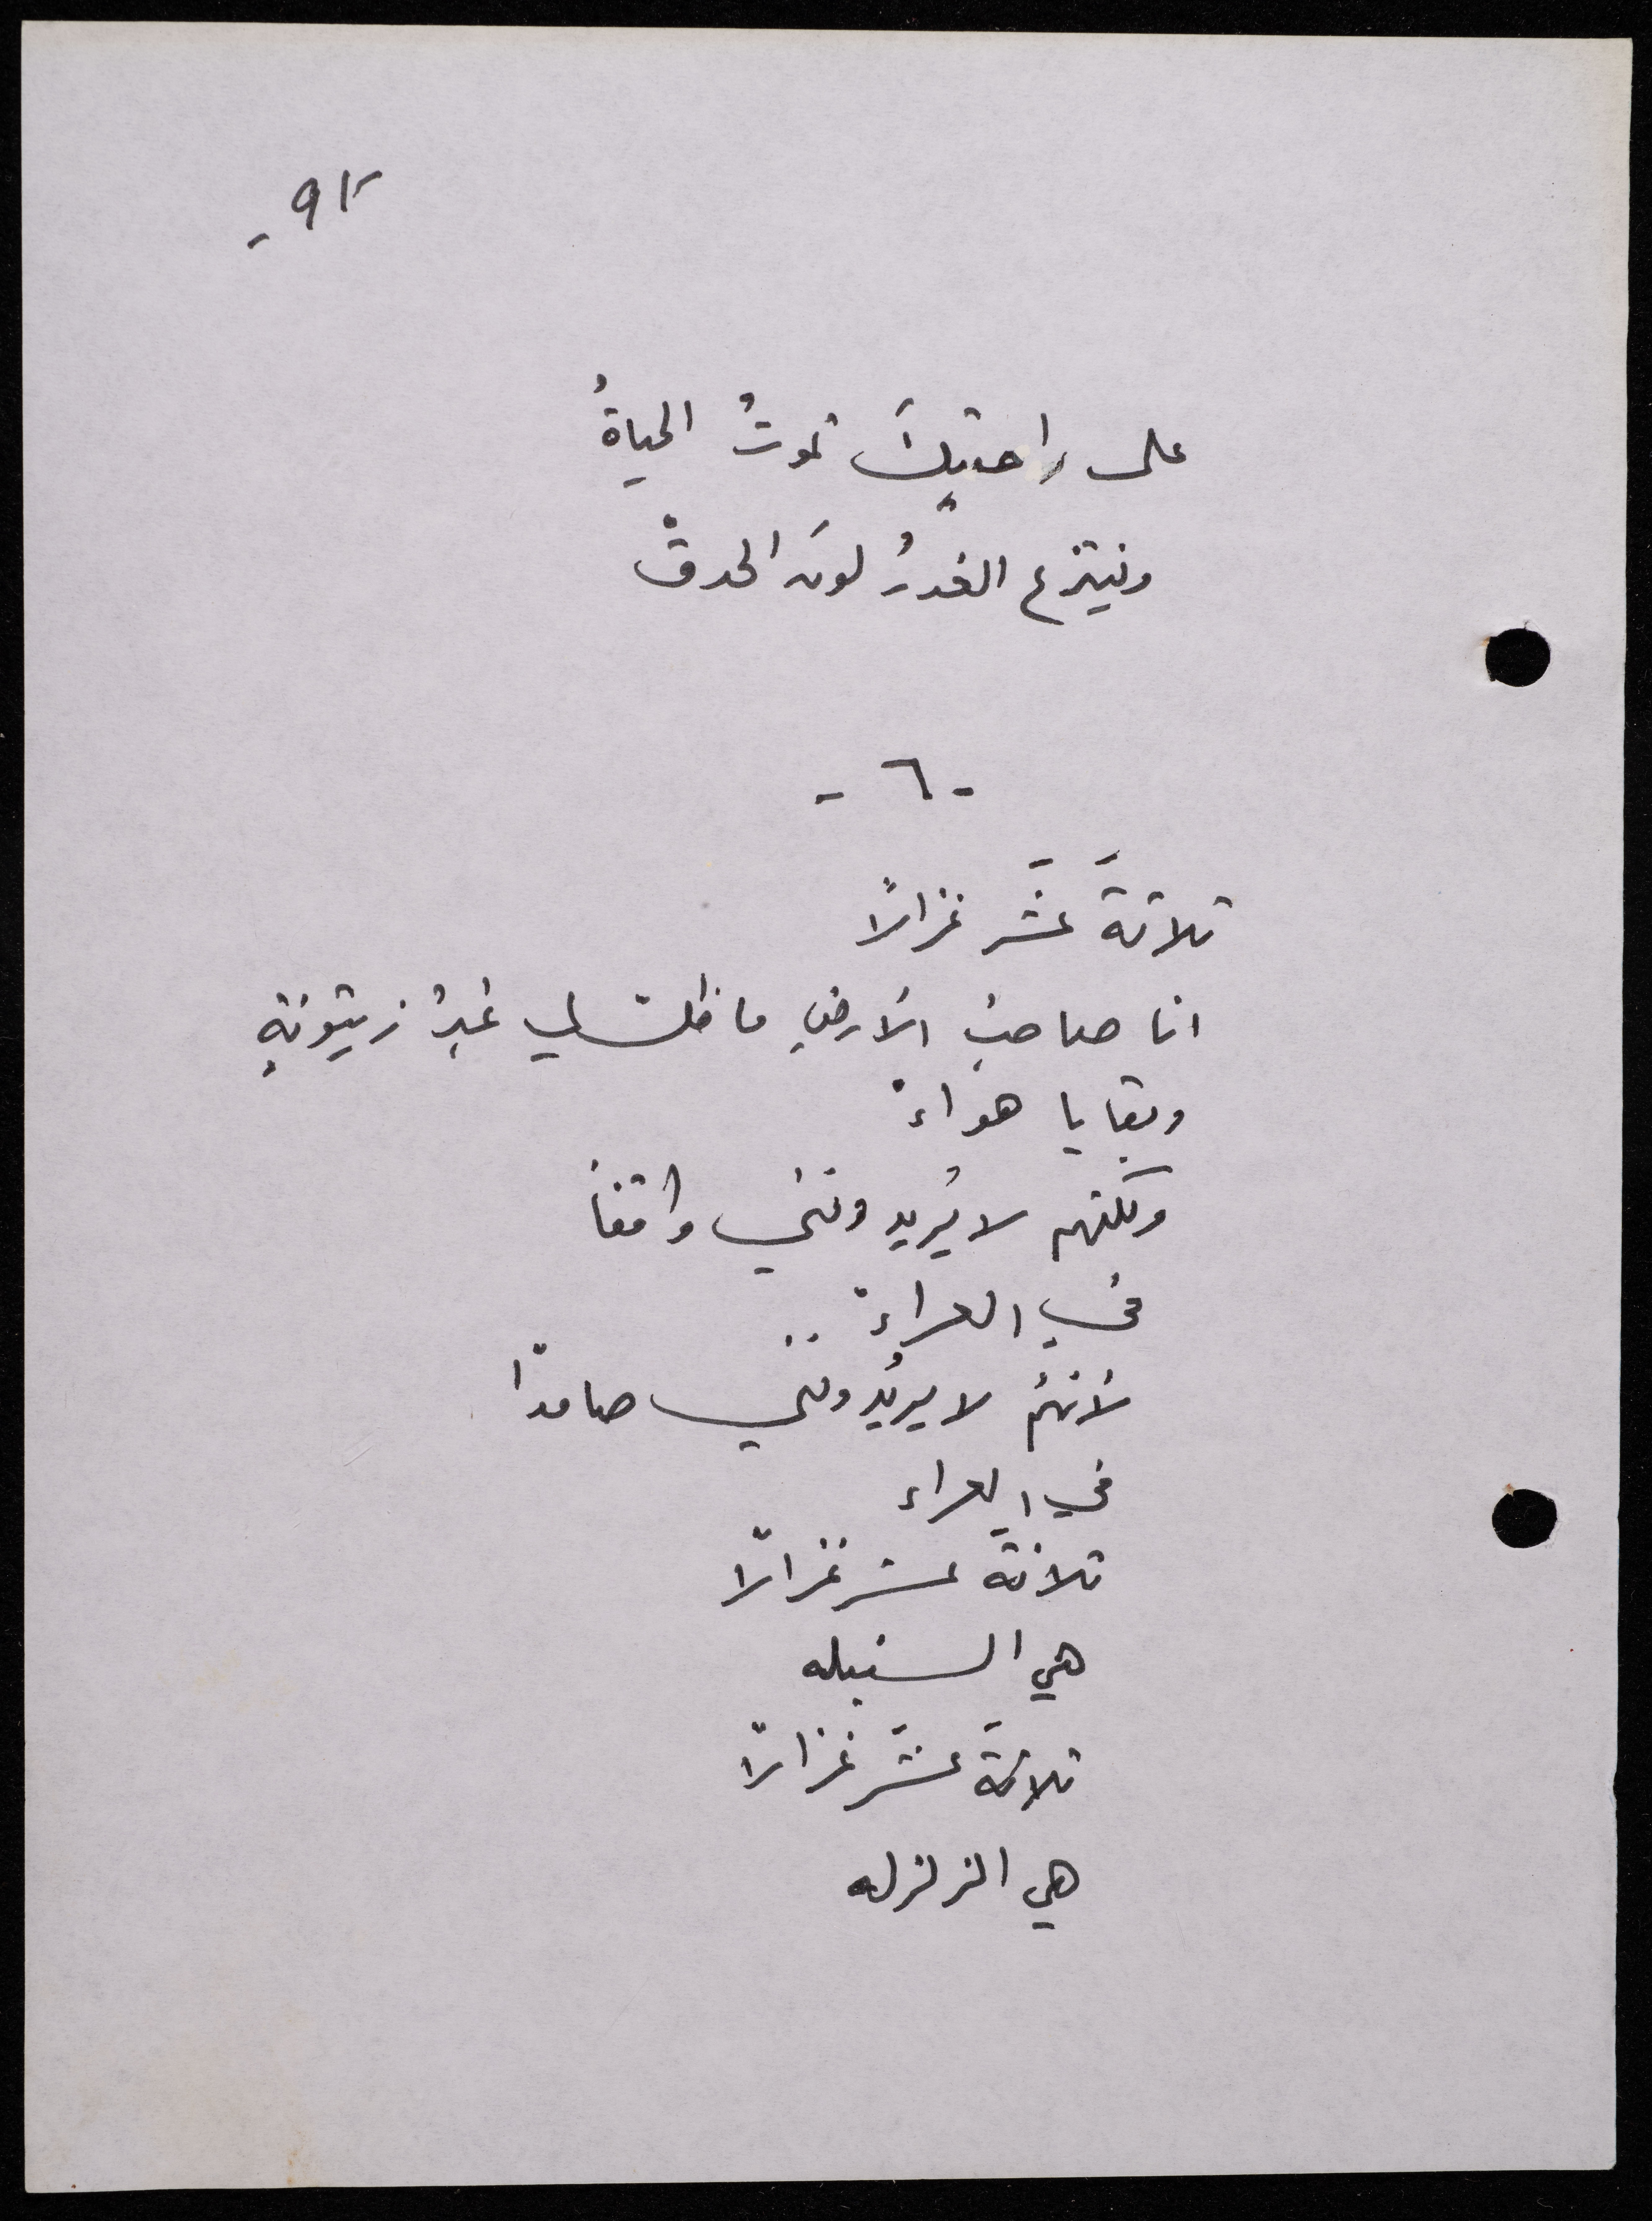 -٩١
على راحتيكَ تموتُ الحياةُ
وينتزع الغدرُ لونَ الحدقْ
- ٦ -
ثلاثةَ عشَر غزالاً
انا صاحبُ الأرضِ ما ظلّ لي غيرُ زيتونةٍ
وبقايا هواءْ
ولكنهم لا يُريدونني واقفاً
في العراءْ ..
لأنهُم لا يريُدونني صامداً
في العراء
ثلاثة عشر غزالاً
هي السنبله
ثلاثةَ عشَر غزالاً
هي الزلزله